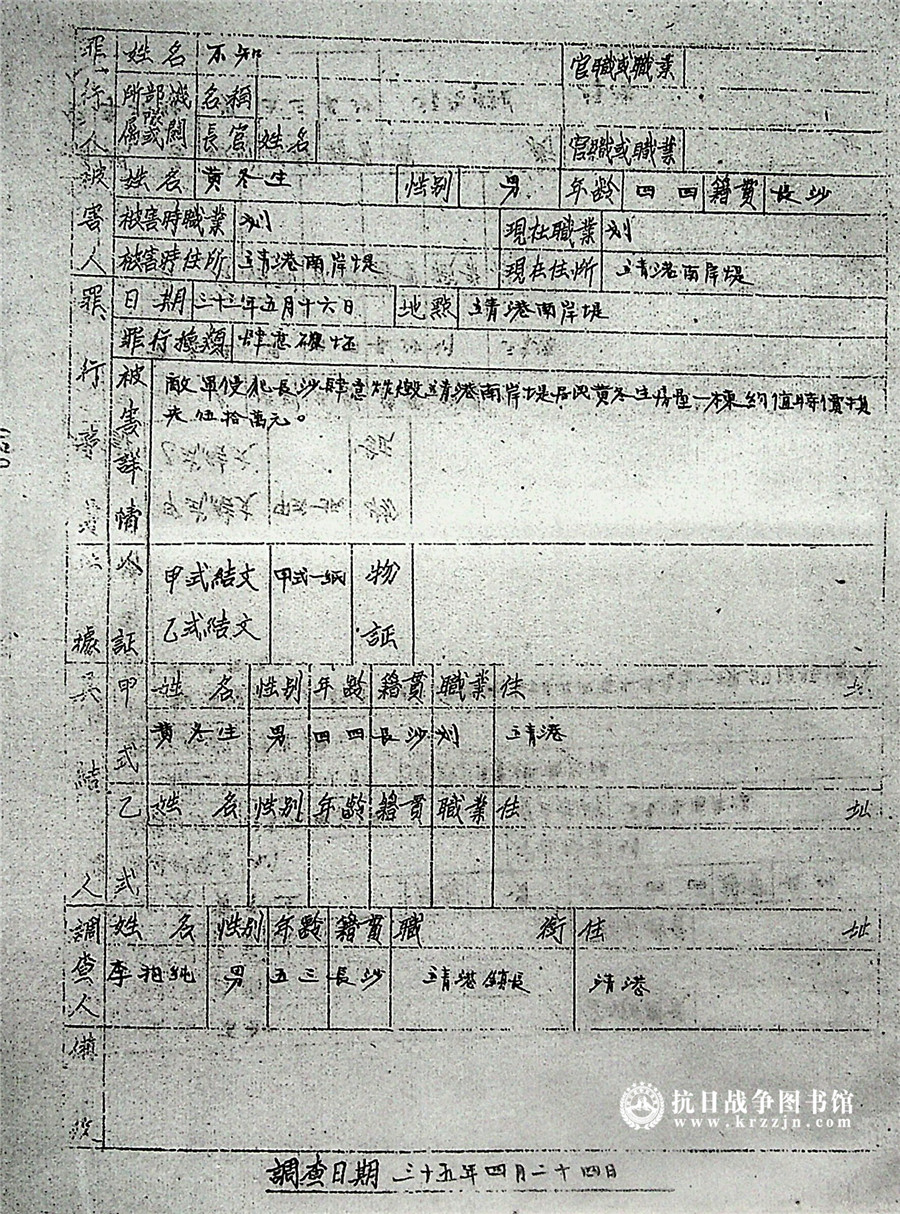 罪行人 姓名 不知 官職或職業
所屬部隊或機關 名稱
長官 姓名 官職或職業
被害人 姓名 黃冬生 性别 男 年齡 四四 籍貫 長沙
被害時職業 划 現在職業 划
被害時住所 靖港南岸堤 現在住所 靖港南岸堤
罪行 日期 三十三年五月十六日 地點 靖港南岸堤
罪行種類 肆意破坏
被害詳情 敵軍侵犯長沙肆意焚燬靖港南岸堤居民黃冬生房屋一棟約值時價損
失伍拾萬元。
人証 甲式結文 甲式一紙 物証
乙式結文
具結人 甲式 姓名 性别 年齡 籍貫 職業 住址
黃冬生 男 四四 長沙 划 靖港
乙式 姓名 性别 年齡 籍貫 職業 住址
調查人 姓名 性别 年齡 籍貫 職銜 住址
李 純 男 五三 長沙 靖港鎮長 靖港
備
抗日战争图书馆
www.krzzjn.com
調查日期 三十五年四月二十四日